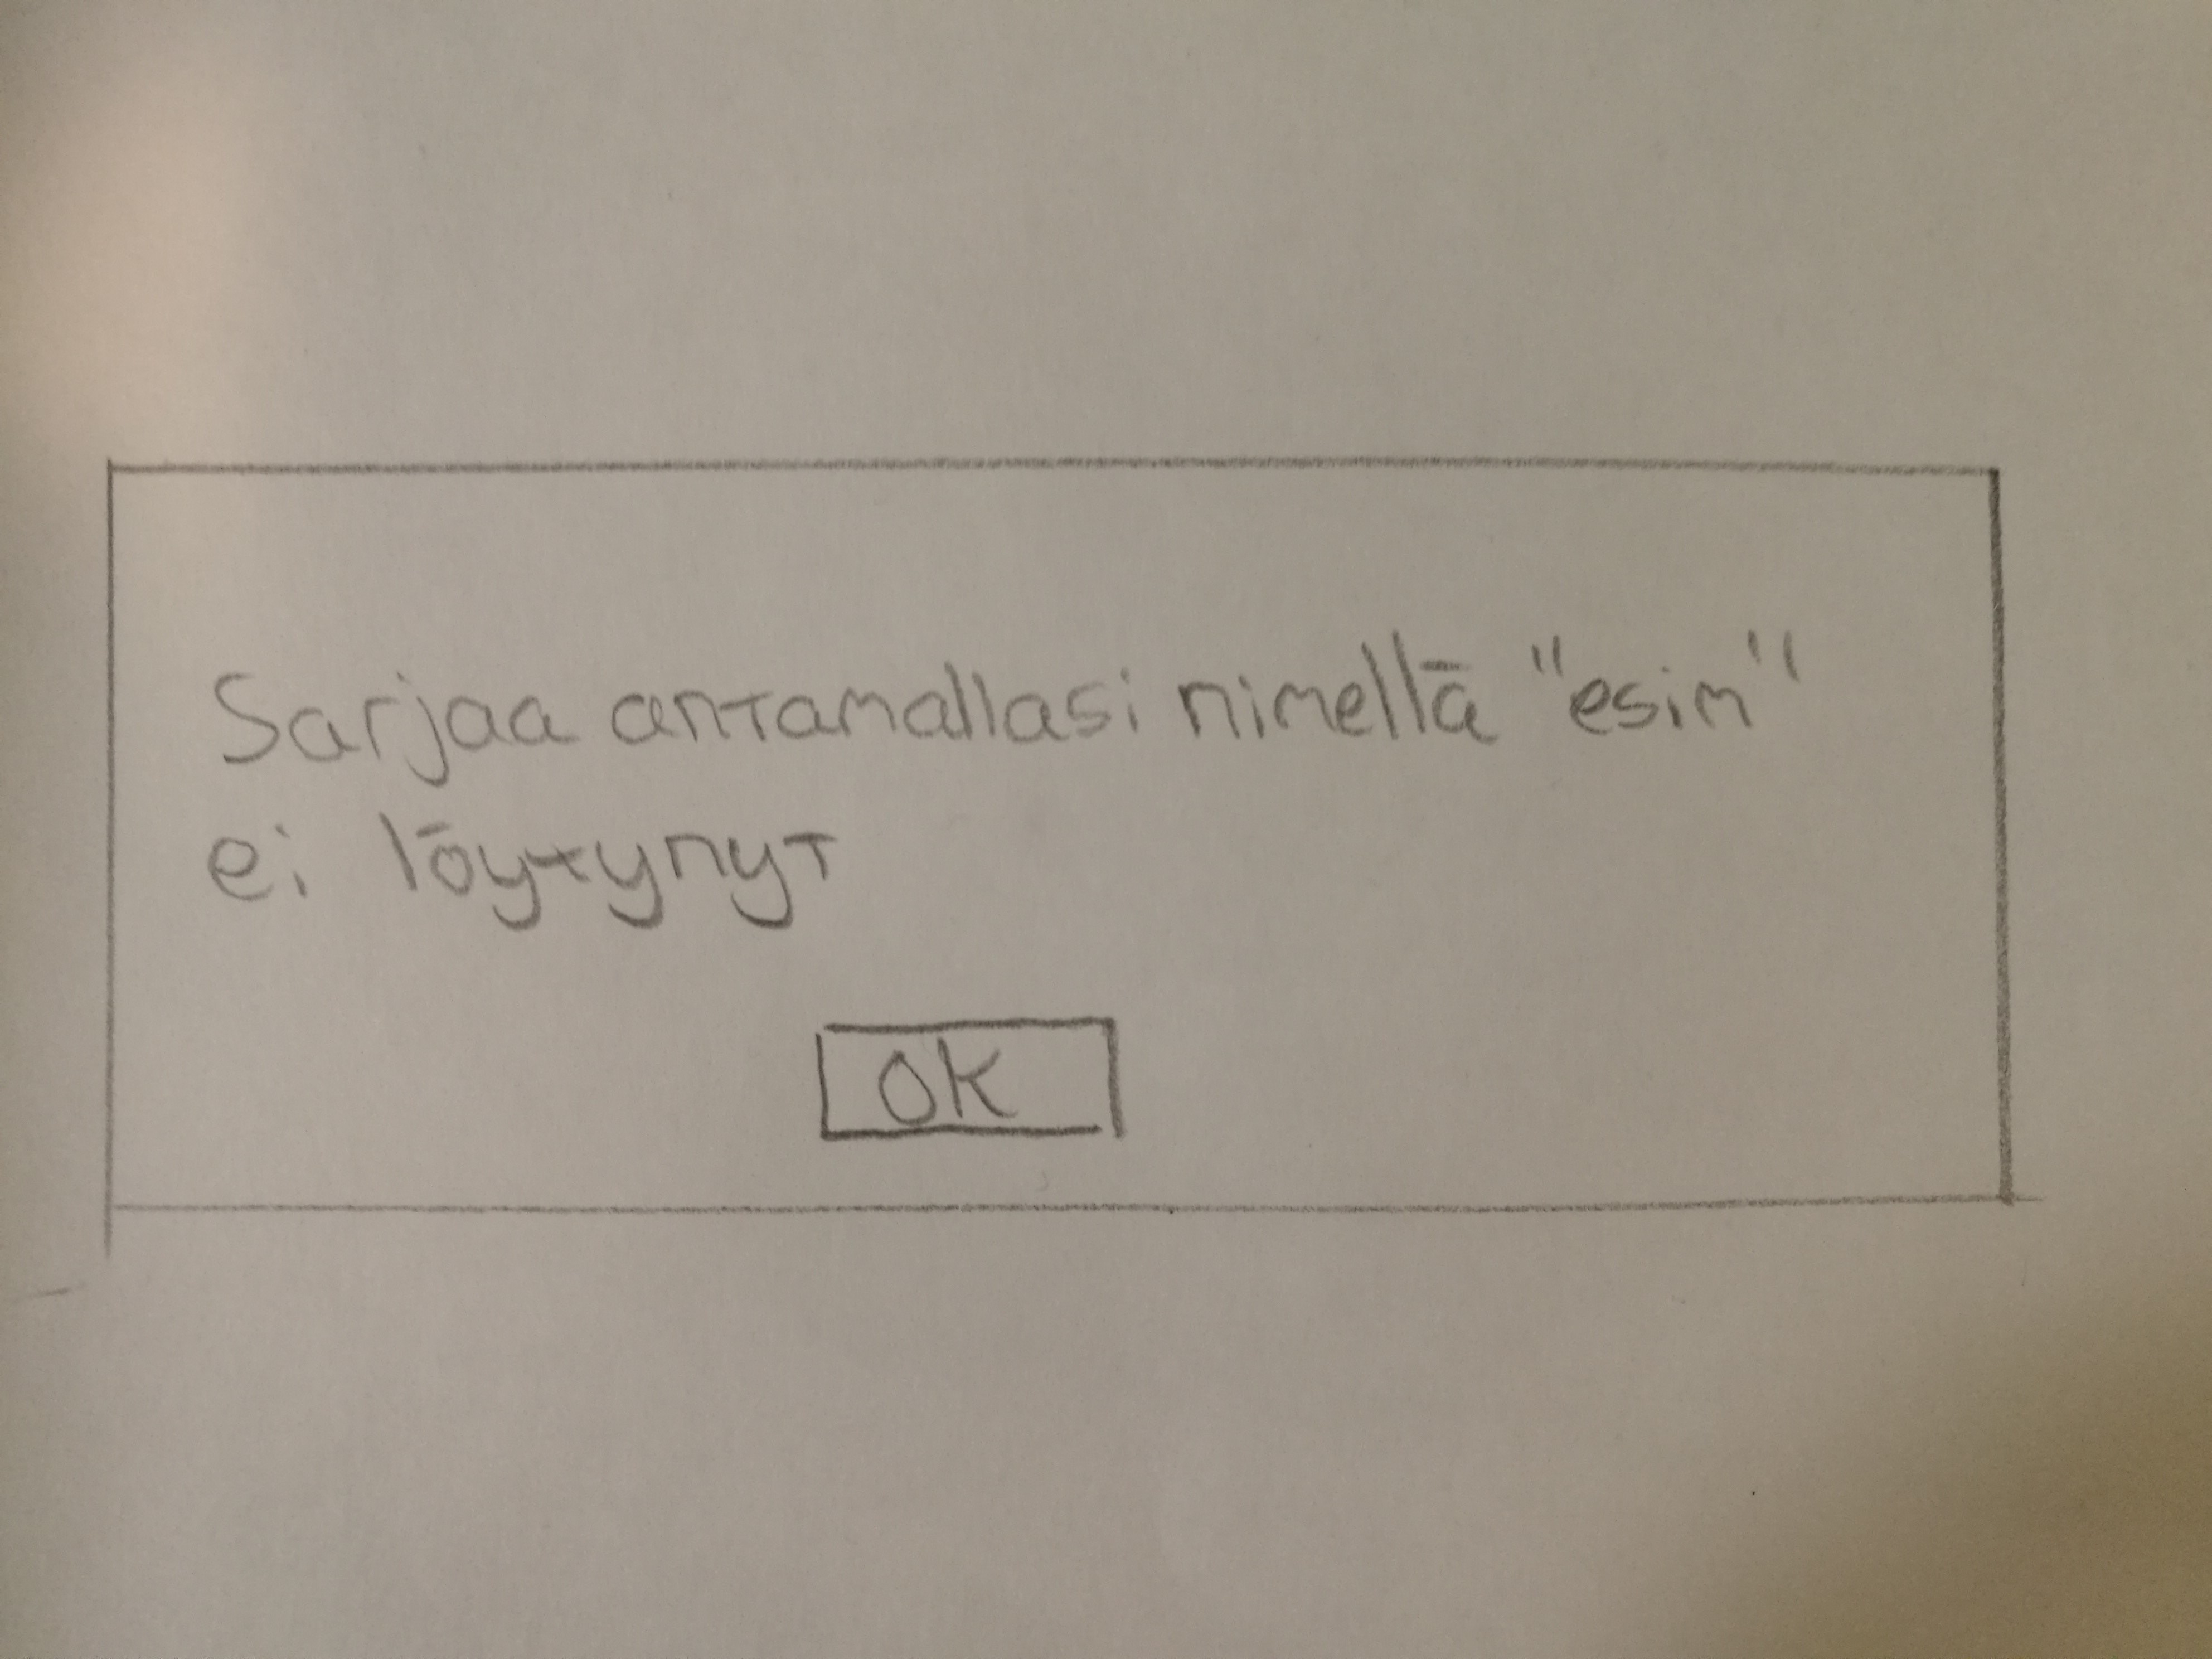 Sarjaa antamallasi nimellä "esim"
ei löytynyt
OK